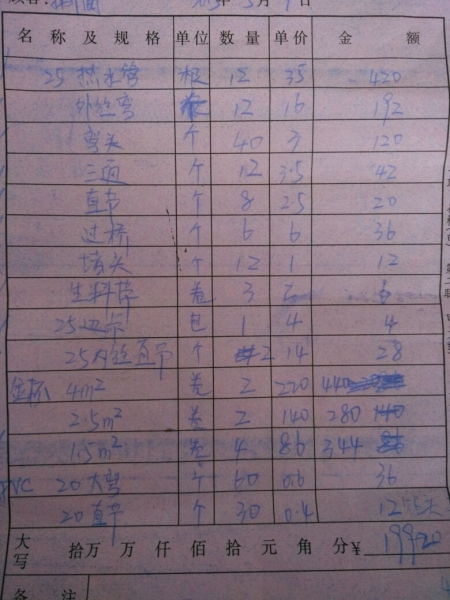 年 5月 日
名称及规格 单位 数量 单价 金额
25 热水管 根 12 35 420
外丝弯 12 16 192
弯头 个 40 3 120
三通 个 12 3.5 42
直节 个 8 2.5 20
过桥 个 6 6 36
堵头 个 12 1 12
生料带 卷 3 2 6
25 卡 包 1 4 4
25内丝直节 个 2 14 28
金杯 4m² 卷 2 220 440
2.5m² 卷 2 140 280
1.5m² 卷 4 86 344
PVC 20大弯 个 60 0.6 36
20直节 个 30 0.4 12
大写 拾万 万 仟 佰 拾 元 角 分¥
备注